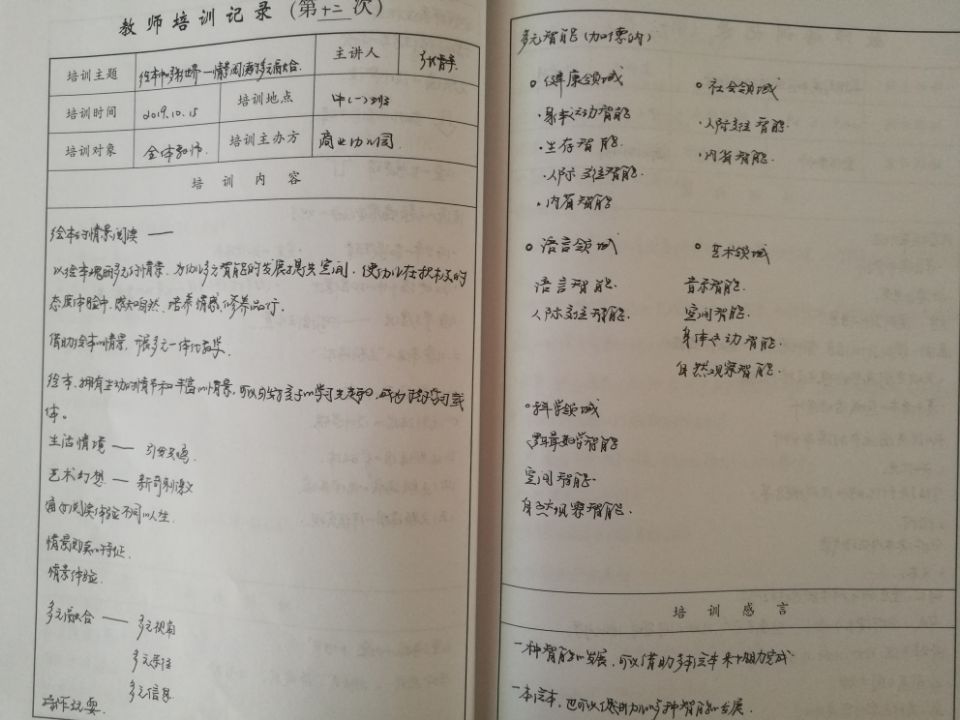 教师培训记录（第十二次）
培训主题 绘本 情景阅读 多元融合 主讲人
培训时间 2019.10.15 培训地点 中(一)班
培训对象 全体教师. 培训主办方 商业幼儿园
培训内容
绘本的情景阅读 ——
以绘本 多元的情景、为幼儿多元智能的发展提供空间，使幼儿在积极的
态度体验中，感知自然、培养情感，修养品行.
借助绘本的情景，开展多元一体化教学.
绘本，拥有生动的情节和丰富的情景，可以 孩子的学习 ，成为 学习载
体。
生活情境 —— 引发共鸣.
艺术幻想 — 新奇刺激
情景阅读体验不同的人生.
情景阅读的特征.
情景体验.
多元融合 —— 多元视角
多元
多元信息
操作玩耍.
多元智能 (加德纳)
健康领域
·身体运动智能
·生存智能.
·人际交往智能
·内省智能
语言领域
语言智能.
人际交往智能.
科学领域
逻辑数学智能
空间智能.
自然观察智能.
社会领域
·人际交往智能.
·内省智能.
艺术领域
音乐智能.
空间智能.
身体运动智能.
自然观察智能.
培训感言
一种智能的发展，可以借助多本绘本来 完成
一本绘本，也可以 多种智能的发展.